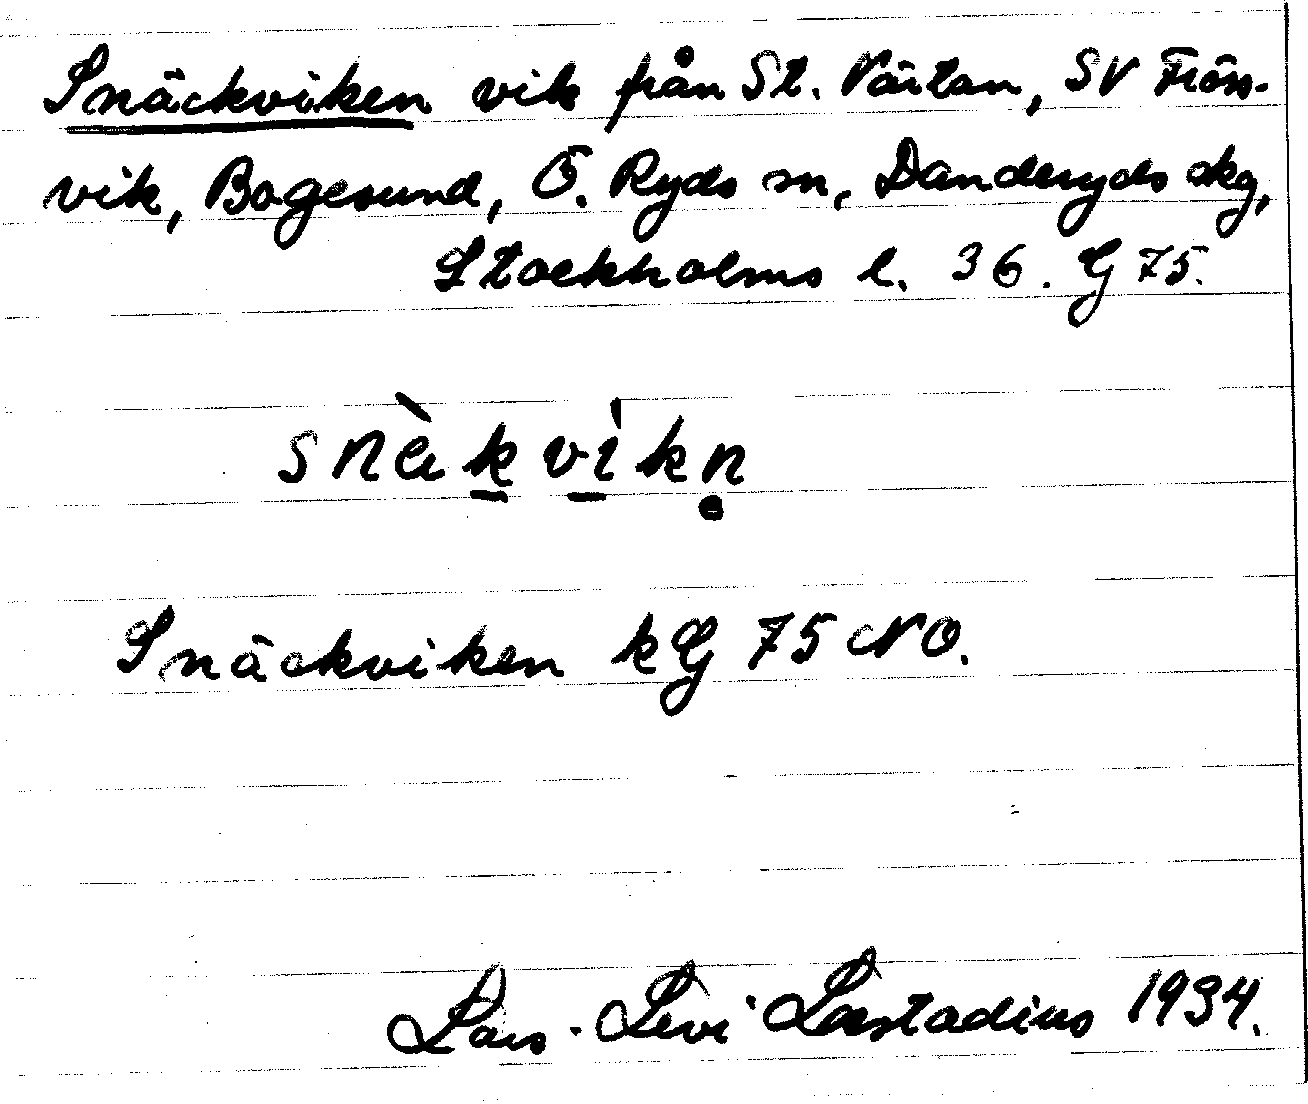 Snäckviken vik från St. Värtan, SV Frös-
vik, Bogesund, Ö. Ryds sn, Danderyds skg,
Stockholms l. 36. G 75.
snä̀k̠vi̠̍kn̥
Snäckviken kG 75 NO.
Lars-Levi Læstadius 1934.